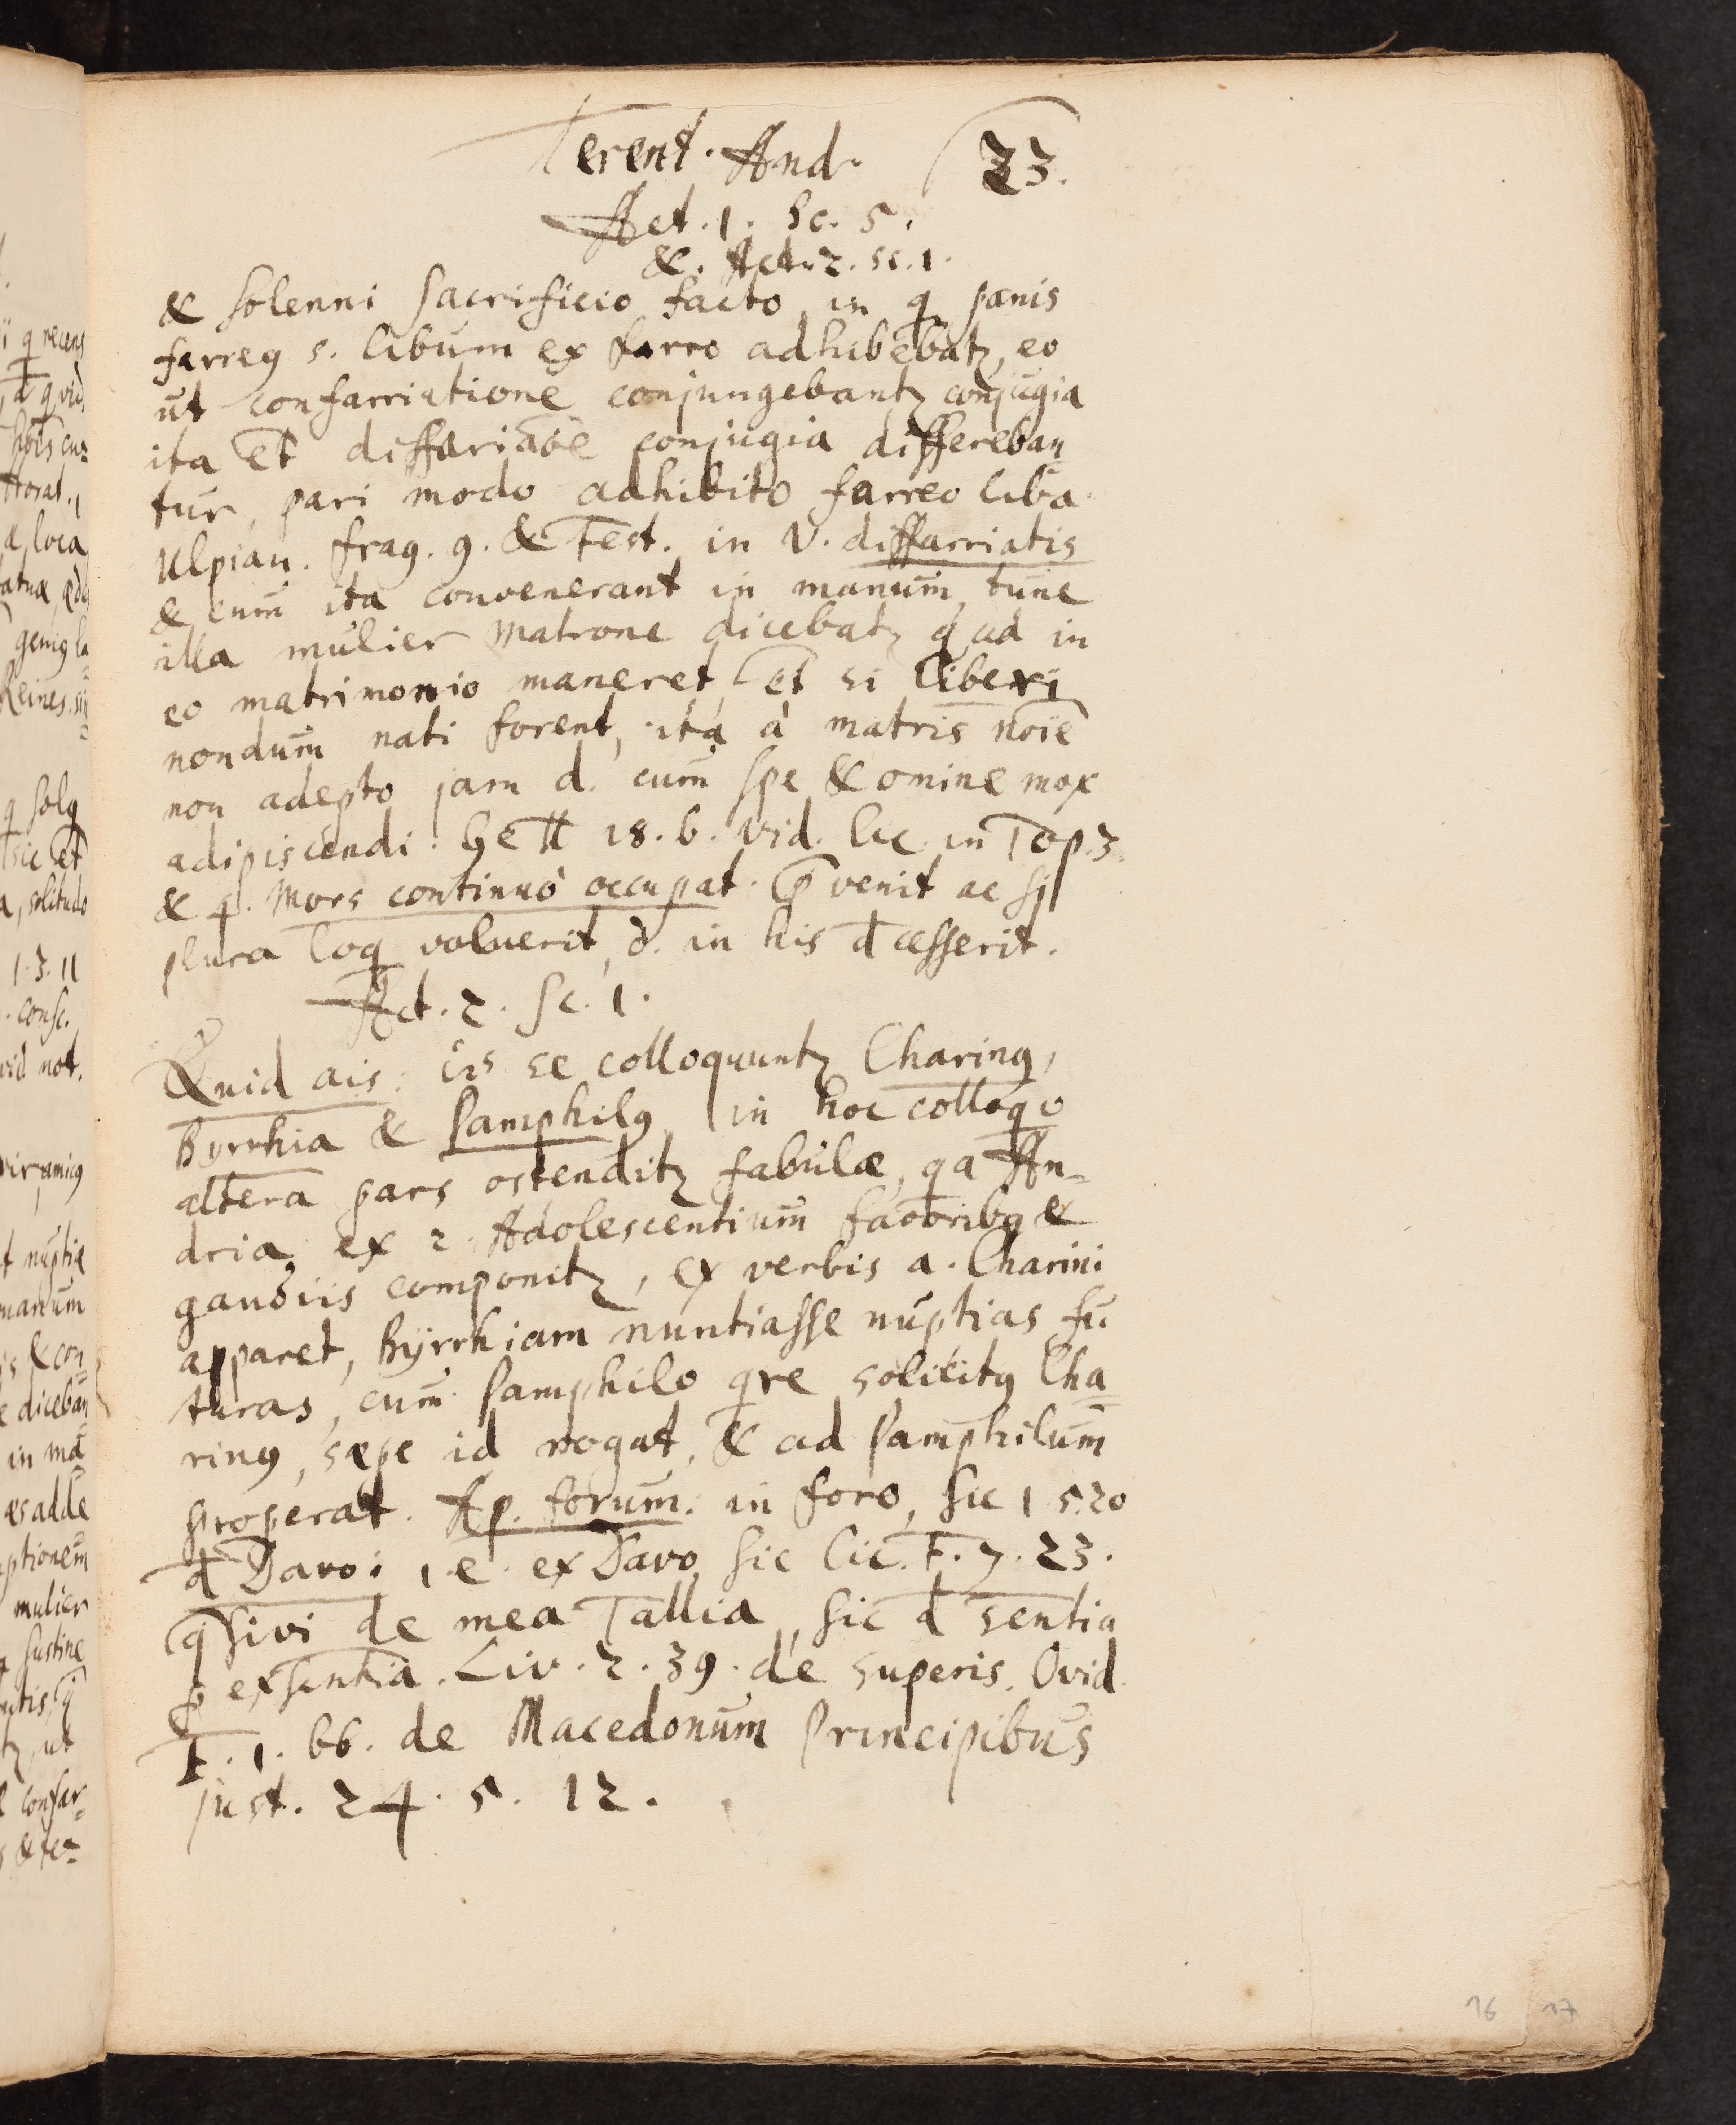 Terent. And. 23.
Act. 1. Sc. 5.
&. Act. 2. sc. 1.
& solenni sacrificio facto, in q panis
farreꝰ s. libum ex farro adhibebatꝫ, eo
ut confarriatione conjungebantꝫ conjugia
ita et diffariaõe conjugia differeban
tur, pari modo adhibito farreo liba
Ulpian. frag. 9. & Fest. in V. diffarriatis
& cum ita convenerant in manum, tune
illa mulier matrone dicebatꝫ qͩ ad in
eo matrimonio maneret, et si liberi
nondum nati forent, ita à matris noïe
non adepto jam d. cum spe & omine mox
adipiscendi. Gell 18. 6. vid. Cic. in Top. 3
& q. Mors continuò occupat. venit ac si
plura loq̄ voluerit, d. in his đcesserit.
Act. 2. Sc. 1.
Quid ais: se colloquuntꝫ Charinꝰ,
Byrrhia & Pamphilꝰ, in hoc colloqo
altera pars ostenditꝫ fabulæ, qa An-
dria, ex 2. Adolescentium favoribꝰ &
gaudiis componitꝫ, ex verbis a. Charini
apparet, Byrrhiam nuntiasse nuptias fu
turas, cum Pamphilo qre solicitꝰ Cha
rinꝰ, sæpe id rogat, & ad Pamphilum
properat. Ap. forum. in foro, sic 1 5. 20
đ Davo: i. e. ex Davo, sic Cic. F. 7. 23.
qsivi de mea Tallia, sic đ sentia
p exsentia. Liv. 2. 39. de superis. Ovid.
F. 1. 66. de Macedonum Principibus
Just. 24. 5. 12.
16 17